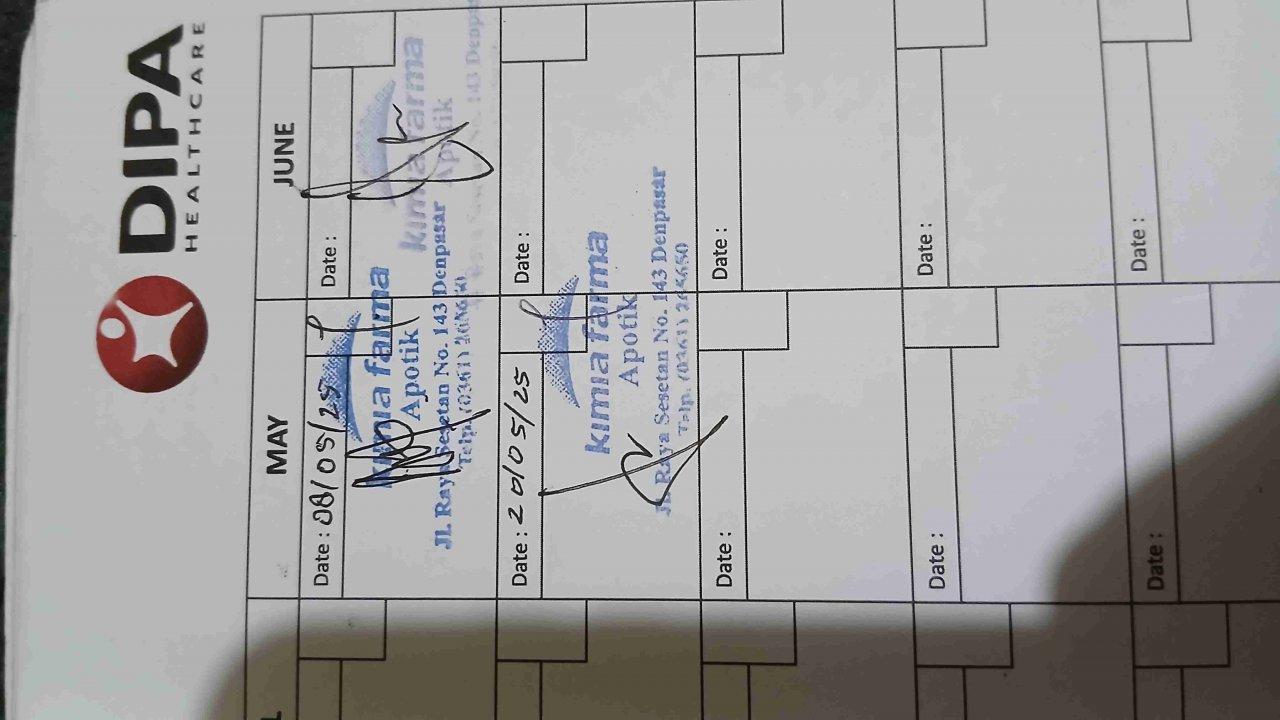 DIPA
HEALTHCARE
MAY
JUNE
Date : 08/05/25
Date :
kimia farma
Apotik
Jl. Raya Sesetan No. 143 Denpasar
Telp. (0361)
kimia farma
Apotik
No. 143 Denpasar
Date : 20/05/25
Date :
kimia farma
Apotik
Jl. Raya Sesetan No. 143 Denpasar
Telp. (0361)
Date :
Date :
Date :
Date :
Date :
Date :